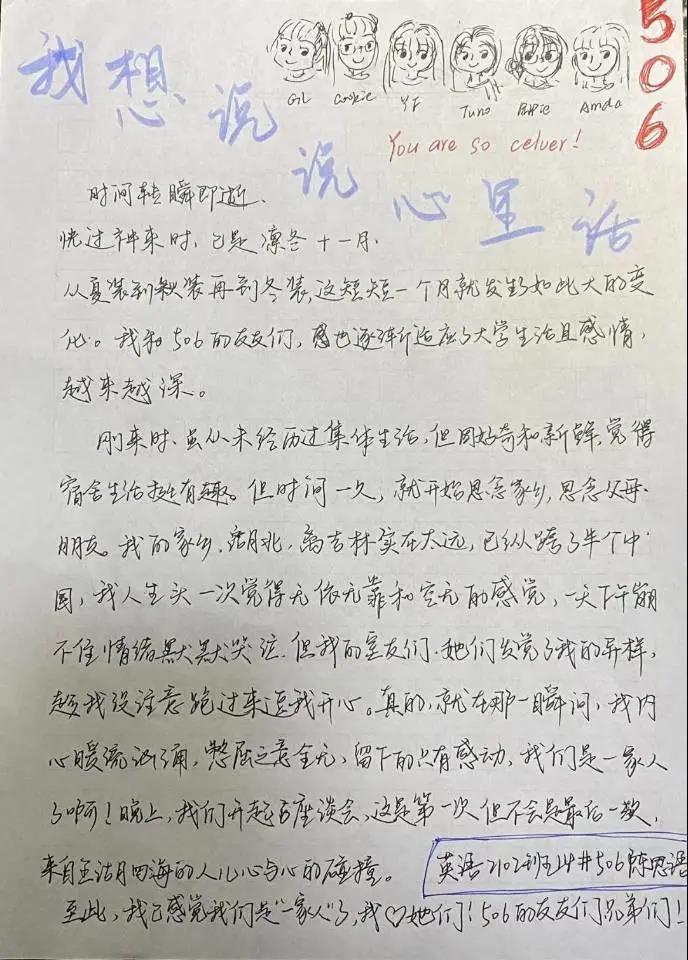 506
GL Cookie YF Tuno Ppie Amda
You are so celver!
我想说说心里话
时间转瞬即逝.
恍过神来时,已是凛冬十一月.
从夏装到秋装再到冬装,这短短一个月就发生了如此大的变
化。我和506的友友们,感也逐渐适应了大学生活且感情,
越来越深。
刚来时.虽从未经历过集体生活,但因好奇和新鲜,觉得
宿舍生活挺有趣。但时间一久,就开始思念家乡,思念父母.
朋友。我的家乡.湖北,离吉林实在太远,已纵跨了半个中
国,我人生头一次觉得无依无靠和空无的感觉,一天下午崩
不住情绪默默哭泣.但我的室友们.她们发觉了我的异样,
趁我没注意跑过来逗我开心。真的,就在那一瞬间,我内
心暖流汹涌,憋屈之意全无,留下的只有感动,我们是一家人
了啊!晚上,我们开起了座谈会,这是第一次但不会是最后一次,
来自五湖四海的人儿心与心的碰撞。
英语2102班14#506陈思语
至此,我已感觉我们是"一家人"了,我♡她们!506的友友们兄弟们!